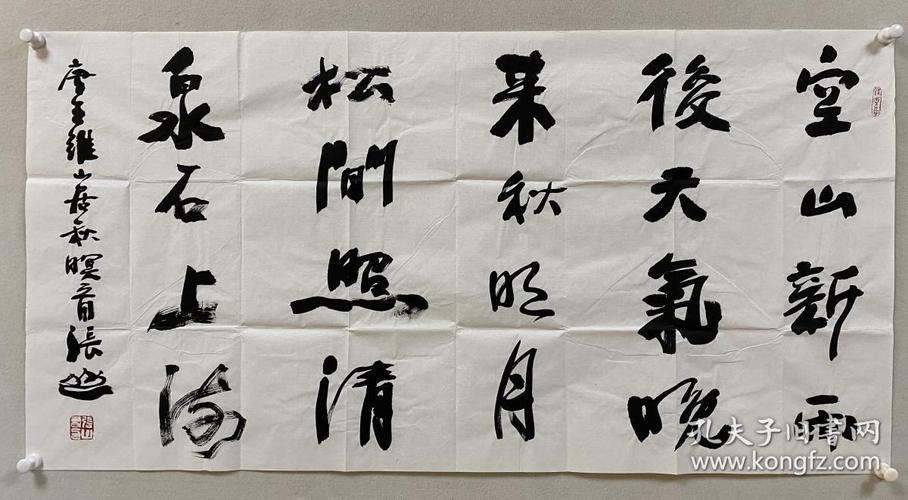 空山新雨
後天氣晚
来秋明月
松間照清
泉石上流
唐王維山居秋暝 張
孔夫子旧书网
www.kongfz.com